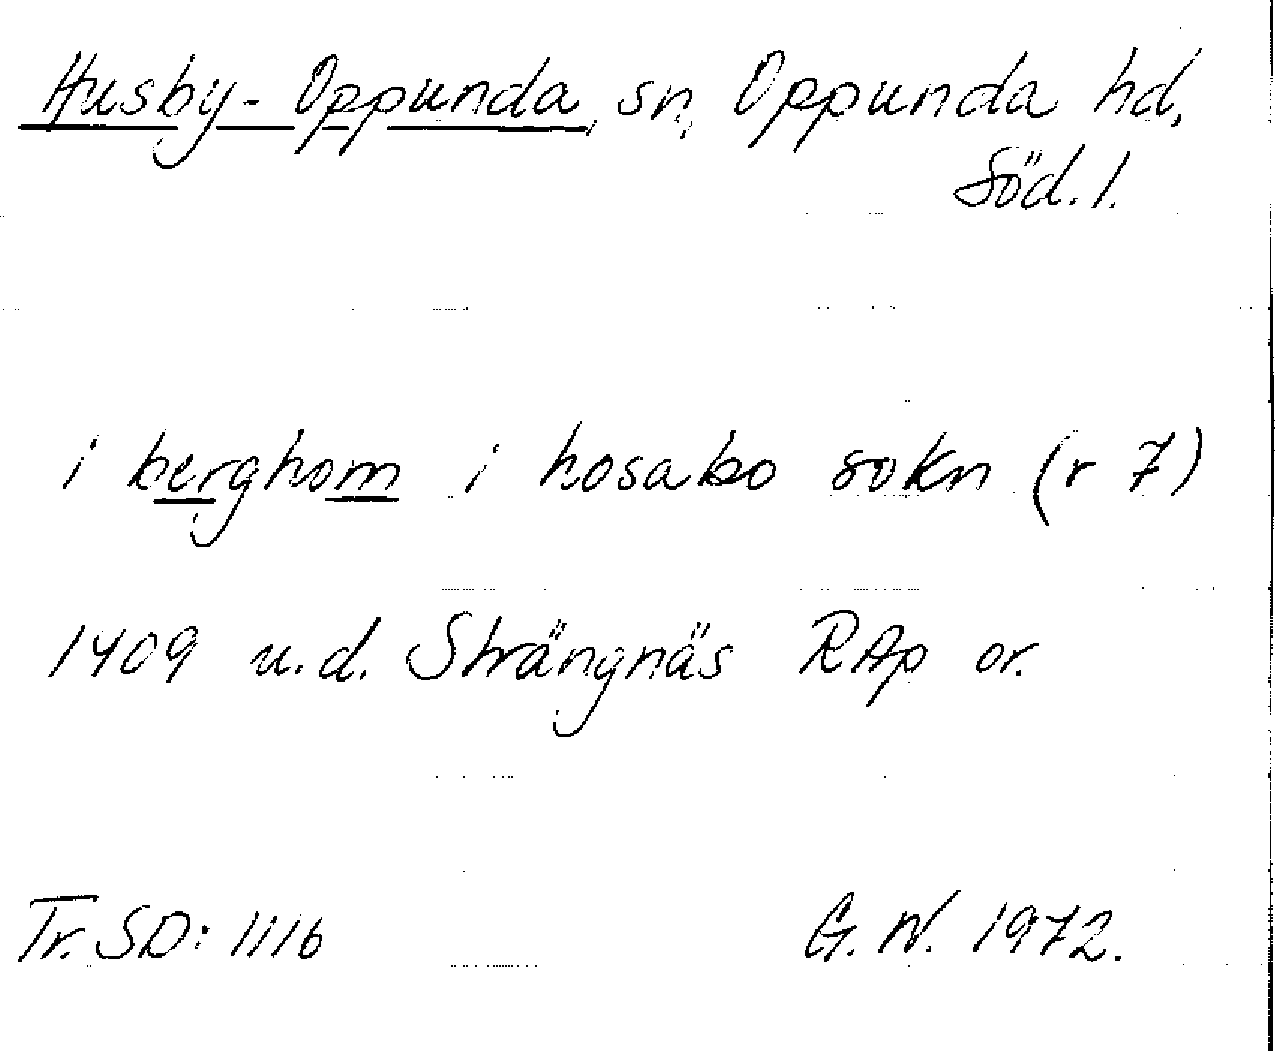 Husby-Oppunda, sn, Oppunda hd,
Söd. l.
i berghom i hosabo sokn (r 7)
1409 u.d. Strängnäs RAp or.
Tr. SD: 1116 G. W. 1972.